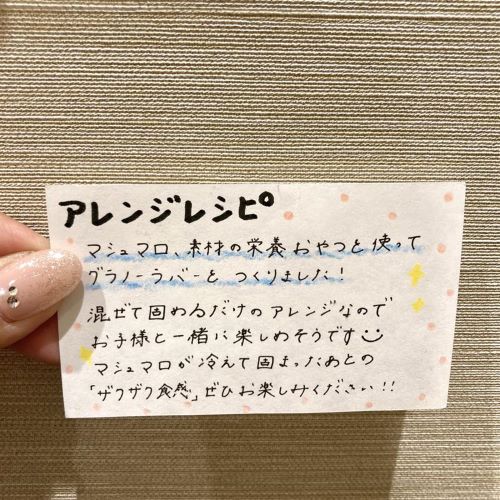 アレンジレシピ
マシュマロ、素材の栄養おやつと使って
グラノーラバーを つくりました!
混ぜて固めるだけのアレンジなので
お子様と一緒に楽しめそうです
マシュマロが冷えて固まったあとの
「ザクザク食感」ぜひお楽しみください!!